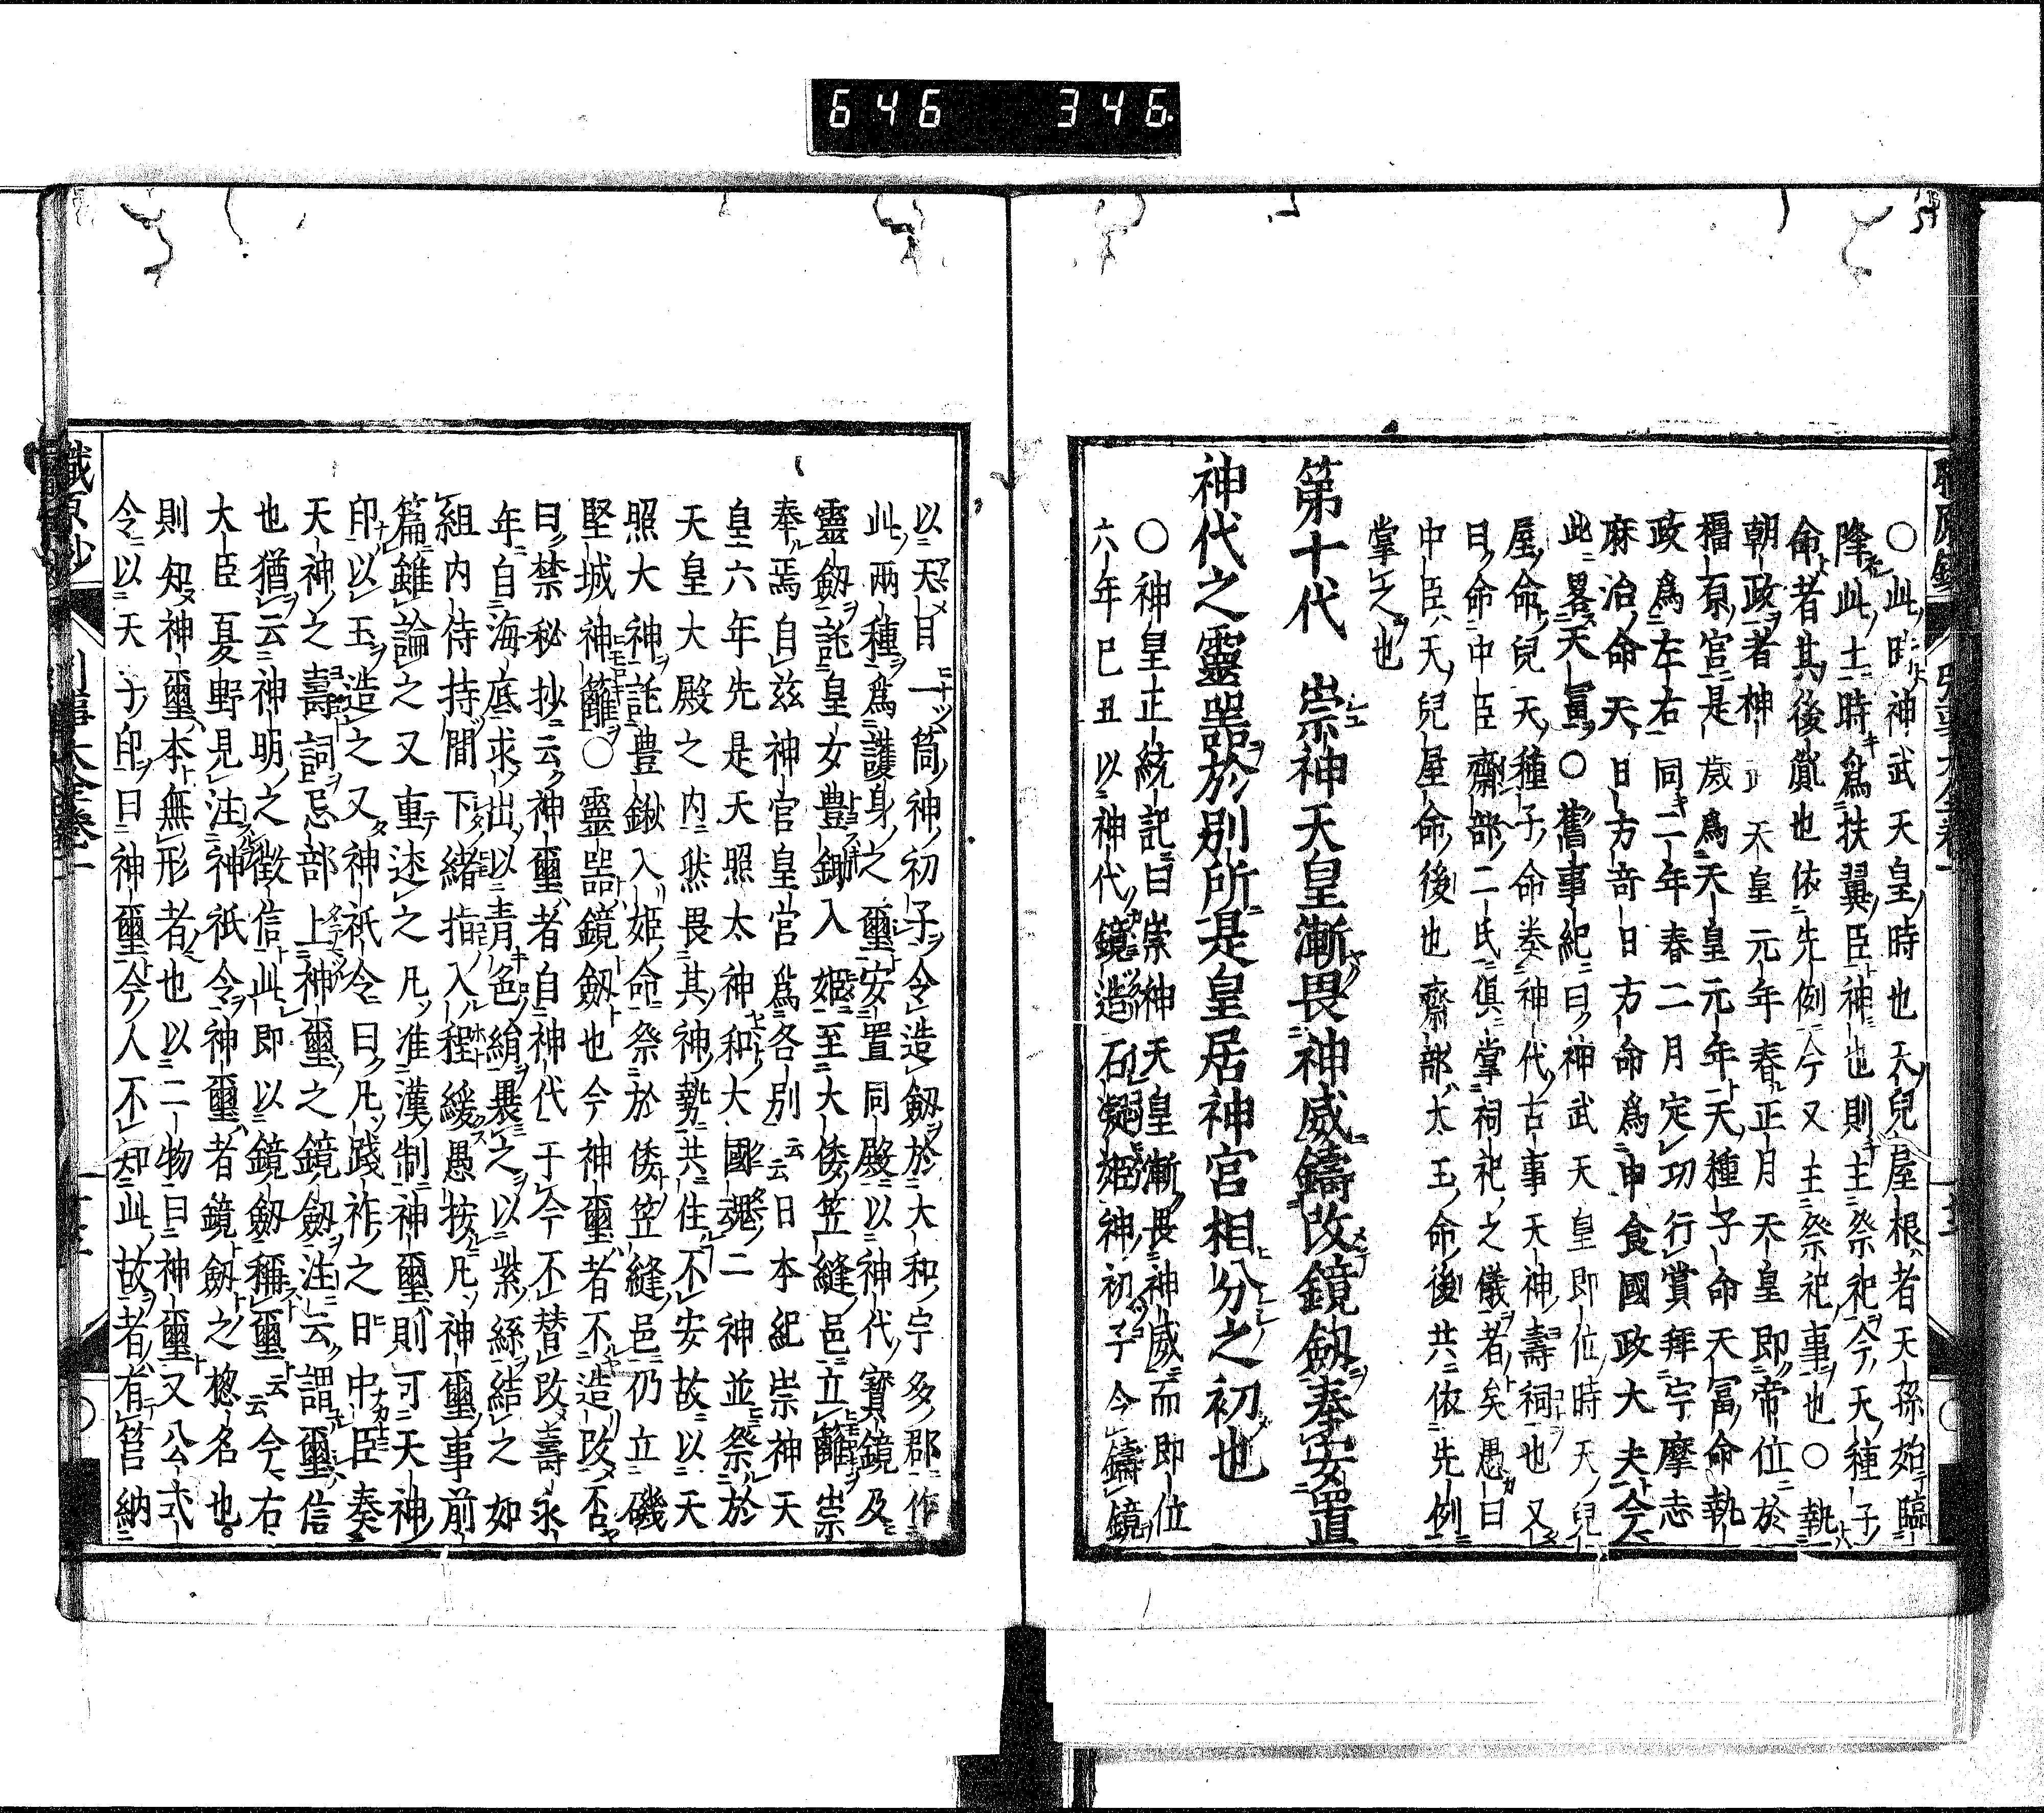 646 346
○此時神武天皇時也天兒屋根者天孫始臨
降此土時爲扶翼臣神也則主祭祀今天種子
命者其後胤也依先例今又主祭祀事也○執
朝政者神武天皇元年春正月天皇即帝位於
橿原宮是歳爲天皇元年天種子命天冨命執
政爲左右同二年春二月定功行賞拜宇摩志
麻治命天日方奇日方命爲申食國政大夫今
此畧天冨○舊事紀曰神武天皇即位時天兒
屋命兒天種子命奏神代古事天神壽祠也又
曰命中臣齋部二氏倶掌祠祀之儀者矣愚曰
中臣天兒屋命後也齋部太玉命後共依先例
掌之也
第十代 崇神天皇漸畏神威鑄改鏡劔奉安置
神代之靈噐於別所是皇居神官相分之初也
○神皇正統記曰崇神天皇漸畏神威而即位
六年巳丑以神代鏡造石凝姫神初子今鑄鏡
以天目一筒神初子令造劔於大和宇多郡作
此兩種爲護身之璽安置同殿以神代寳鏡及
靈劔託皇女豊鋤入姫至大倭笠縫邑立籬崇
奉焉自兹神官皇官爲各別云云日本紀崇神天
皇六年先是天照太神和大國魂二神並祭於
天皇大殿之内然畏其神勢共住不安故以天
照大神託豊鍬入姫命祭於倭笠縫邑仍立磯
堅城神籬○靈噐鏡劔也今神璽者不造改否
曰禁秘抄云神璽者自神代于今不替改壽永
年自海底求出以青色絹褁之以紫絲結之如
組内侍持間下緒指入程緩愚按凡神璽事前
篇雖論之又重述之凡准漢制神璽則可天神
印以玉造之又神祇令曰凡踐祚之日中臣奏
天神之壽詞忌部上神璽之鏡劔注云謂璽信
也猶云神明之徴信此即以鏡劔稱璽云云今右
大臣夏野見注神祇令神璽者鏡劔之惣名也
則知神璽本無形者也以二物曰神璽又公式
令以天子印曰神璽今人不知此故者有筥納